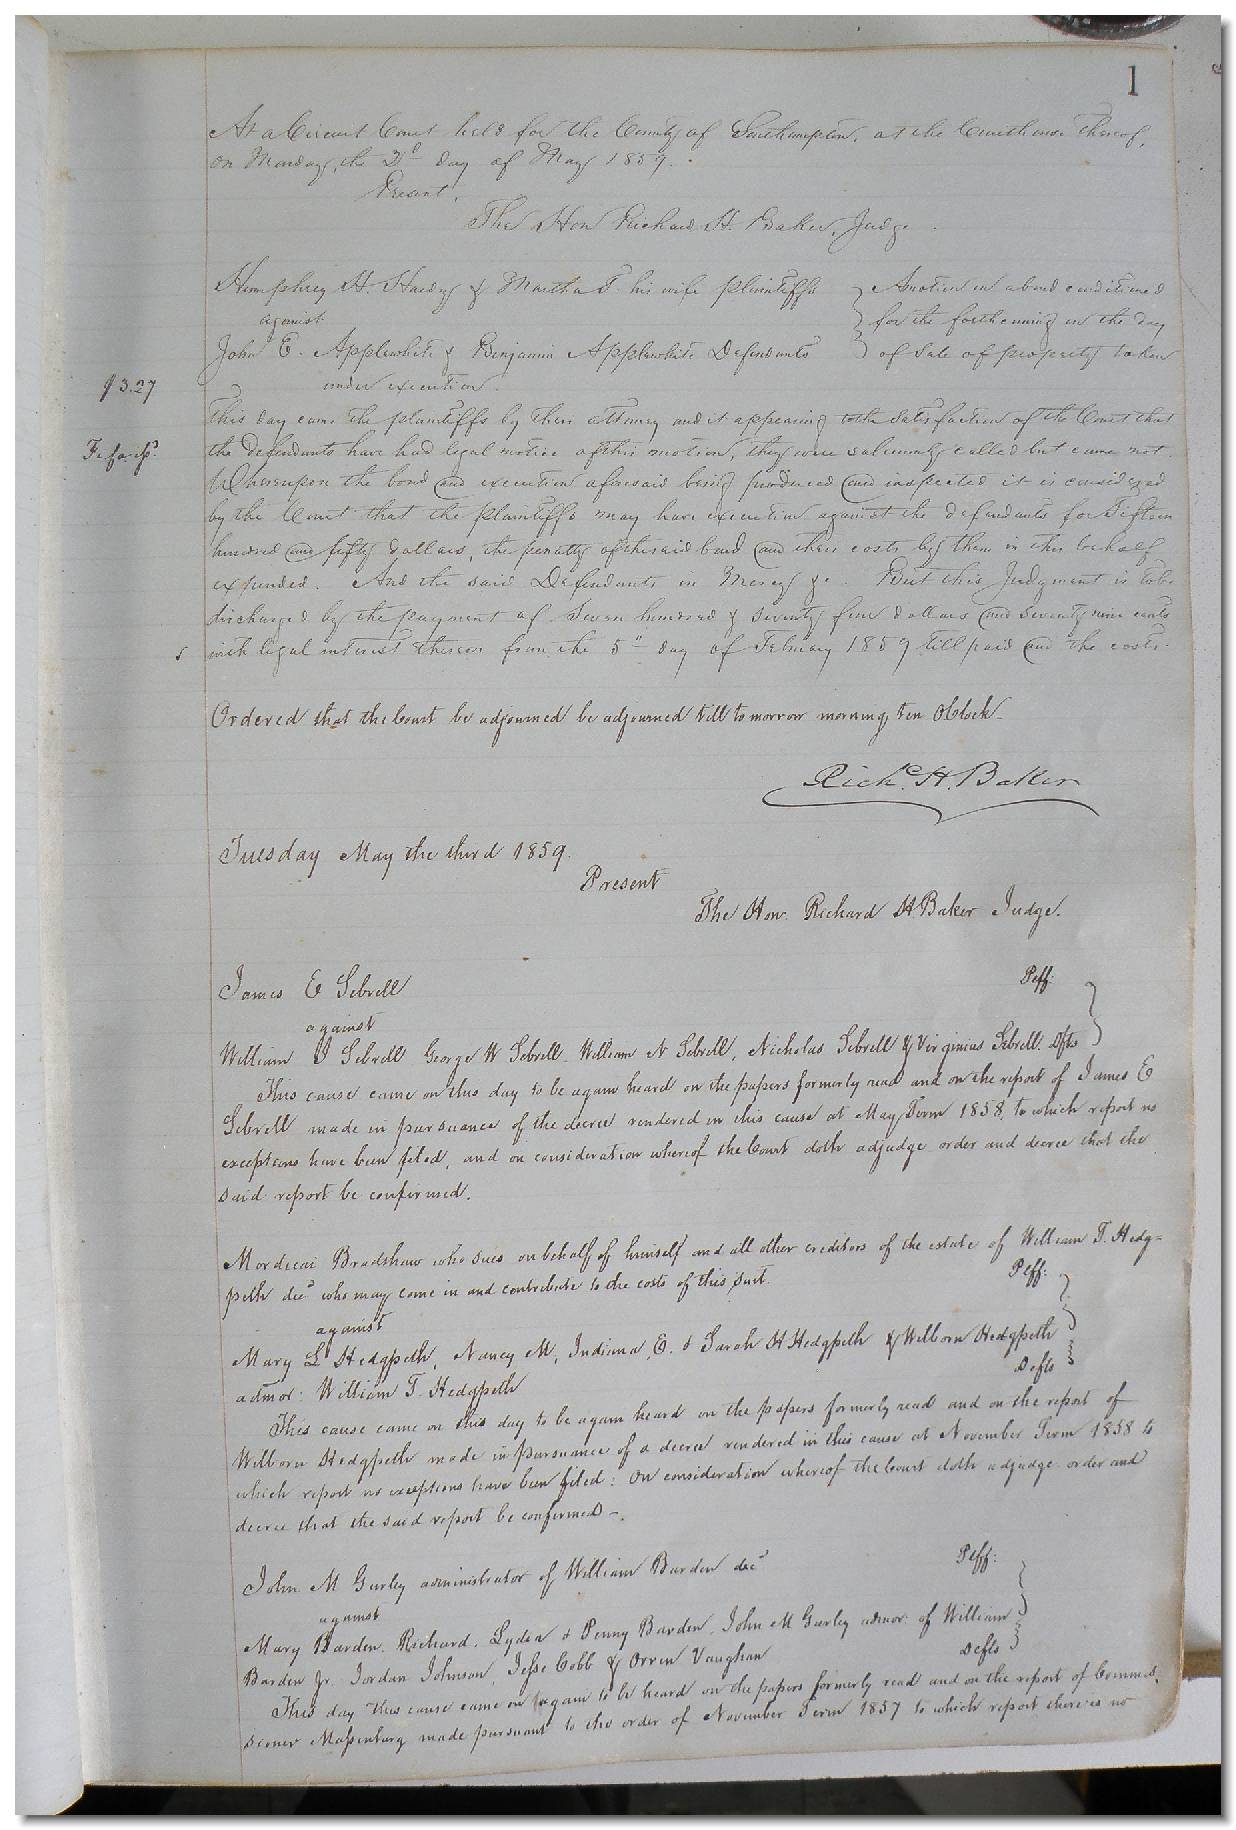 1
At a Circuit Court held for the County of Southampton, at the Courthouse thereof,
on Monday, the 2d day of May 1859.
Present,
The Hon Richard H. Baker, Judge.
Humphrey H. Hardy & Martha T. his wife plaintiffs
against
John E. Applewhite & Benjamin Applewhite Defendants
A motion on a bond conditioned
for the forthcoming on the day
of sale of property taken
under execution.
$3.27
This day came the plaintiffs by their attorney and it appearing to the satisfaction of the Court that
Fi. fa. isd.
the defendants have had legal notice of this motion, they were solemnly called but came not.
Whereupon the bond and execution aforesaid being produced and inspected it is considered
by the Court that the plaintiffs may have execution against the defendants for Fifteen
hundred and fifty dollars, the penalty of the said bond and their costs by them in this behalf
expended. And the said Defendants in Mercy &c. But this Judgment is to be
discharged by the payment of Seven hundred & seventy four dollars and seventy nine cents
with legal interest thereon from the 5th day of February 1859 till paid and the costs.
Ordered that the Court be adjourned be adjourned till tomorrow morning ten OClock
Richd. H. Baker
Tuesday May the third 1859.
Present
The Hon. Richard H. Baker Judge.
James E Sebrell Plff:
against
William J Sebrell George W Sebrell William N Sebrell, Nicholas Sebrell & Virginius Sebrell. Dfts
This cause came on this day to be again heard on the papers formerly read and on the report of James E
Sebrell made in pursuance of the decree rendered in this cause at May Term 1858, to which report no
exceptions have been filed, and on consideration whereof the Court doth adjudge order and decree that the
said report be confirmed.
Mordecai Bradshaw who sues on behalf of himself and all other creditors of the estate of William T. Hedg=
peth decd who may come in and contribute to the costs of this suit. Plff:
against
Mary L Hedgpeth, Nancy M, Indiana, E. & Sarah H Hedgpeth & Wilborn Hedgpeth
admor: William T. Hedgpeth Defts
This cause came on this day to be again heard on the papers formerly read and on the report of
Wilborn Hedgpeth made in pursuance of a decree rendered in this cause at November Term 1858 to
which report no exceptions have been filed: On consideration whereof the Court doth adjudge order and
decree that the said report be confirmed.
John M Gurley administrator of William Barden decd Plff:
against
Mary Barden. Richard. Lydia & Penny Barden. John M Gurley admor: of William
Barden Jr. Jordan Johnson, Jesse Cobb & Orren Vaughan Defts
This day this cause came on again to be heard on the papers formerly read and on the report of Commis,
sioner Massenburg made pursuant to the order of November Term 1857 to which report there is no